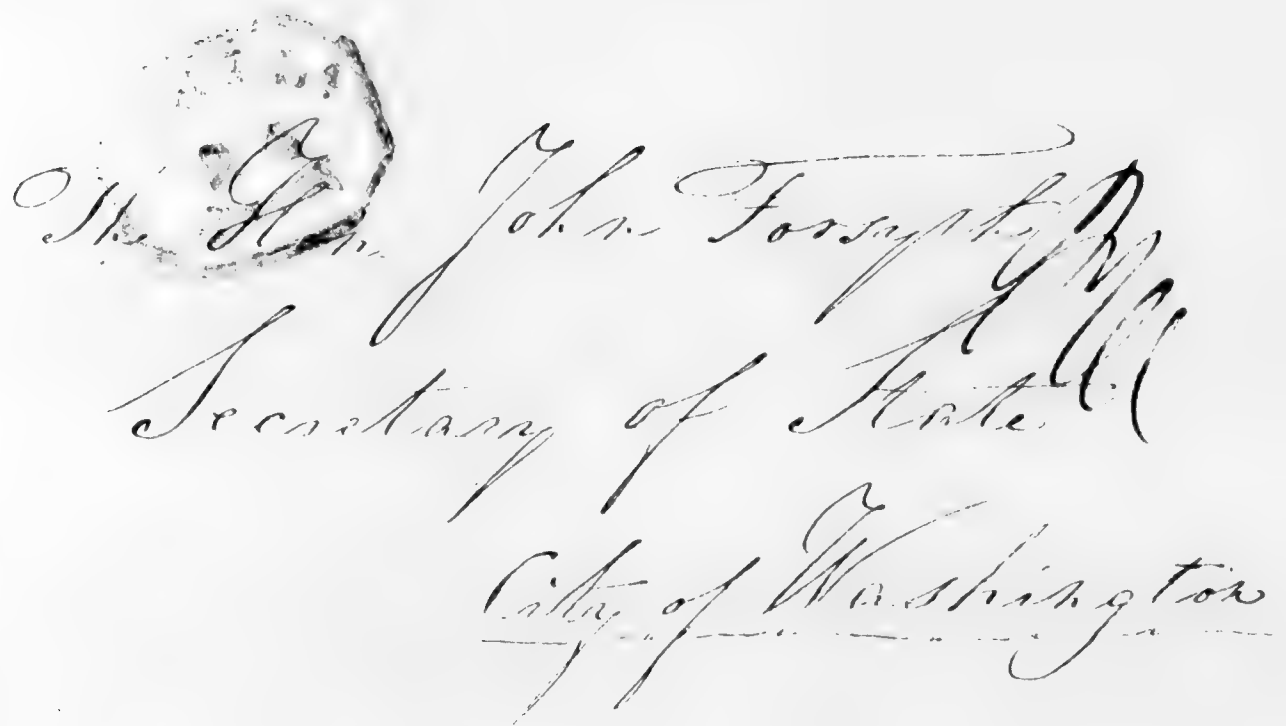 The Hon. John Forsyth
Secretary of State
City of Washington